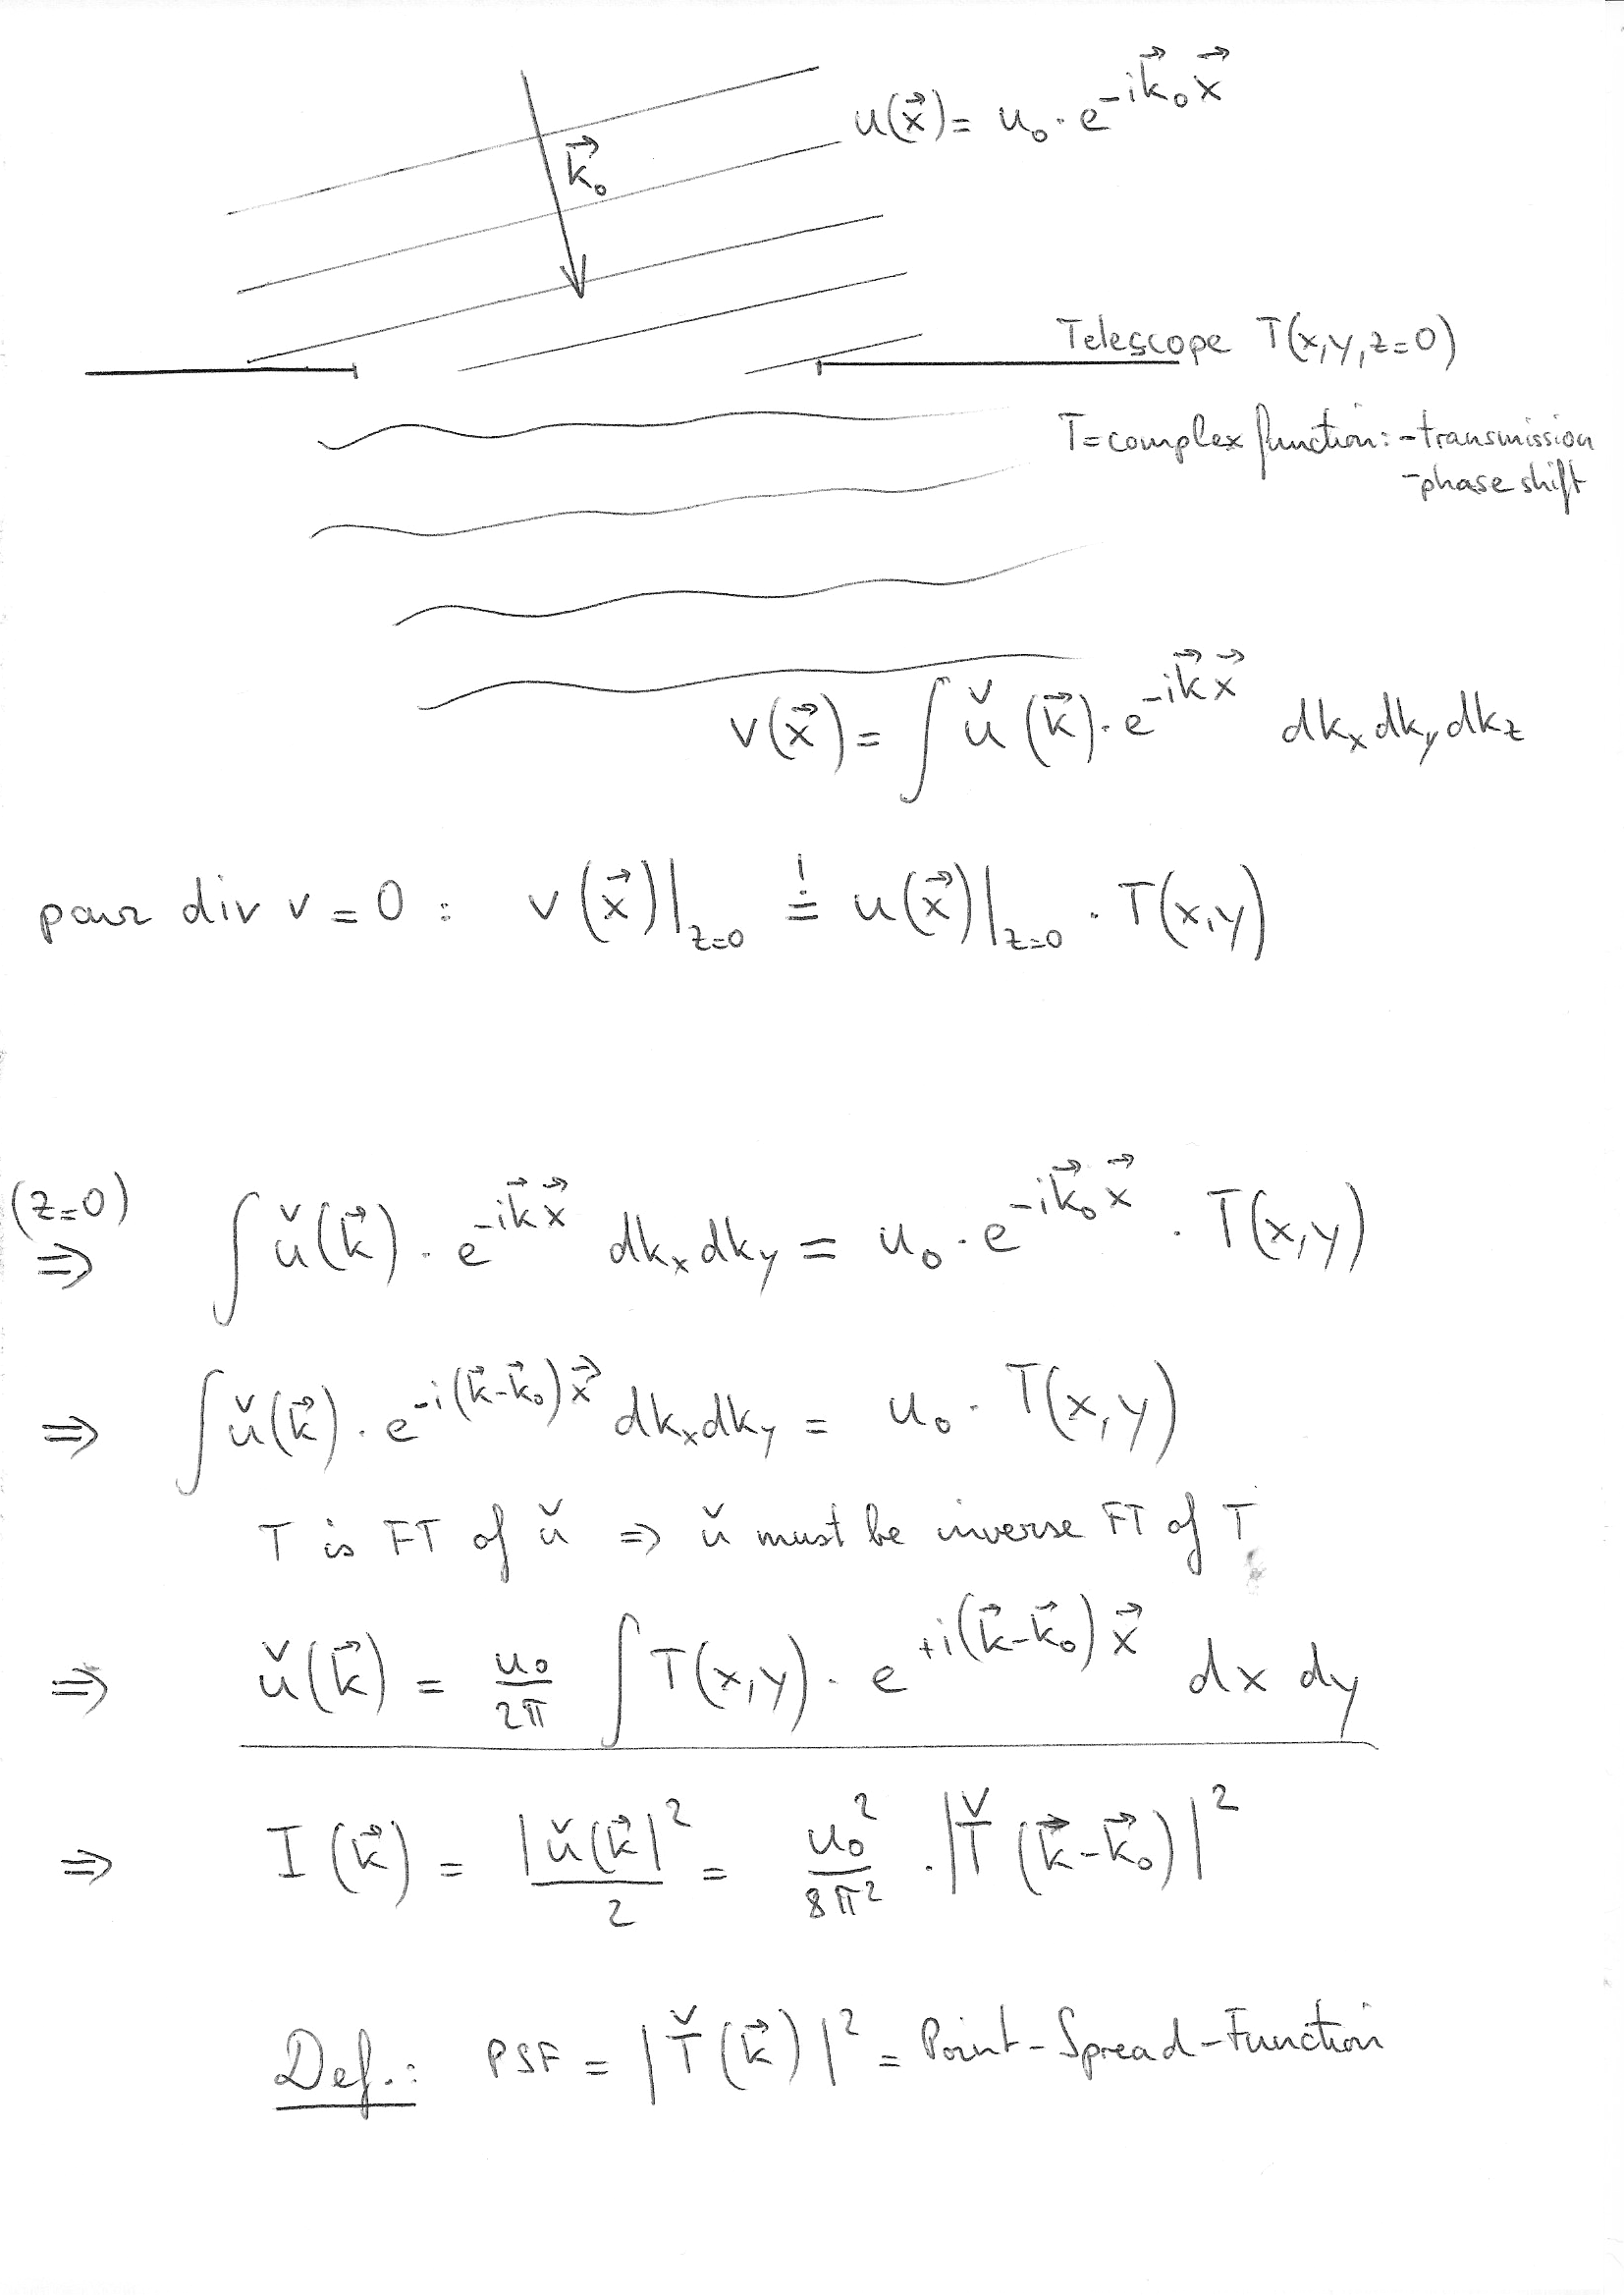 u(x⃗) = u₀ · e^{-i k⃗₀ x⃗}
k⃗₀
Telescope T(x,y,z=0)
T=complex function: -transmission
-phase shift
v(x⃗) = ∫ ǔ(k⃗) · e^{-i k⃗ x⃗} dkₓ dk_y dk_z
pour div v = 0 : v(x⃗)|_{z=0} ≐! u(x⃗)|_{z=0} · T(x,y)
(z=0)
⇒ ∫ ǔ(k⃗) · e^{-i k⃗ x⃗} dkₓ dk_y = u₀ · e^{-i k⃗₀ x⃗} · T(x,y)
⇒ ∫ ǔ(k⃗) · e^{-i(k⃗-k⃗₀) x⃗} dkₓ dk_y = u₀ · T(x,y)
T is FT of ǔ ⇒ ǔ must be inverse FT of T
⇒ ǔ(k⃗) = u₀/2π ∫ T(x,y) · e^{+i(k⃗-k⃗₀) x⃗} dx dy
⇒ I(k⃗) = |ǔ(k⃗|²/2 = u₀²/8π² · |Ť(k⃗-k⃗₀)|²
Def.: PSF = |Ť(k⃗)|² = Point-Spread-Function